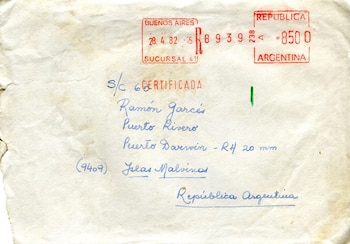 BUENOS AIRES
28.4.82
SUCURSAL
R 8939
REPUBLICA
8500
ARGENTINA
CERTIFICADA
S/C 62
Ramón Garcés
Puerto Rivero
Puerto Darwin - R4 20 mm
(9409) Islas Malvinas
República Argentina